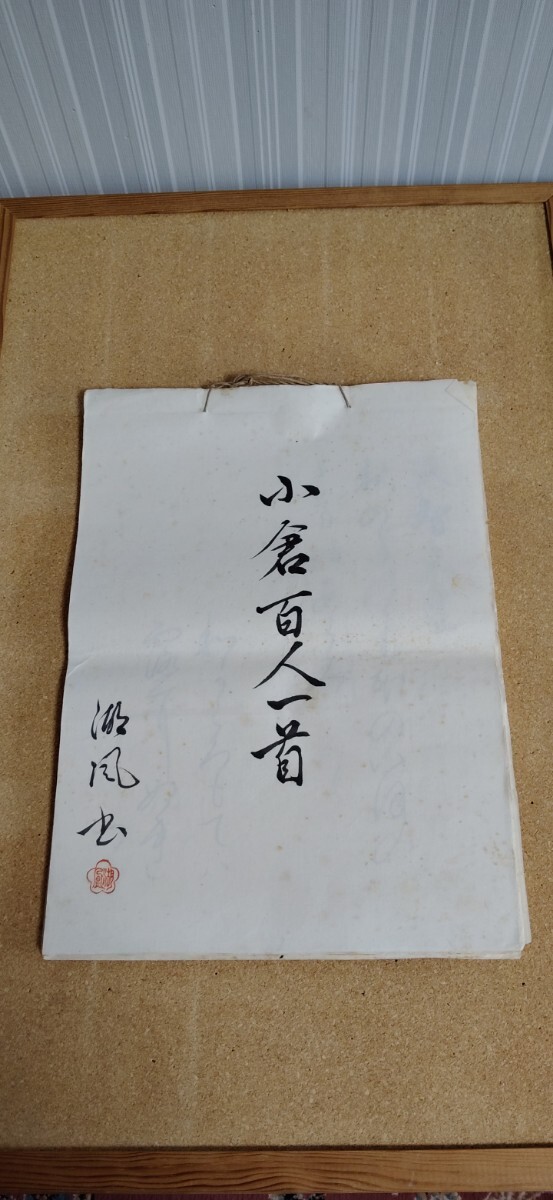 小倉百人一首
湖風書